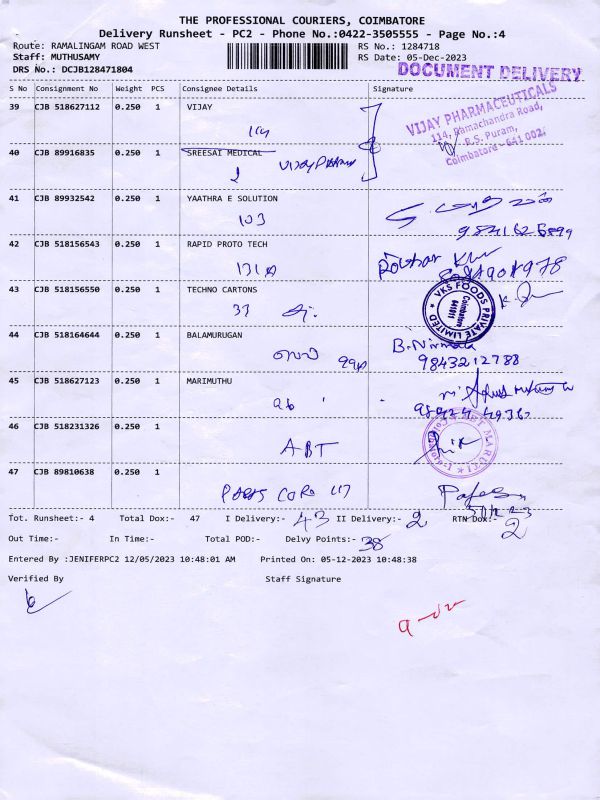 THE PROFESSIONAL COURIERS, COIMBATORE
Delivery Runsheet - PC2 - Phone No.:0422-3505555 - Page No.:4
Route: RAMALINGAM ROAD WEST
RS No.: 1284718
Staff: MUTHUSAMY
RS Date: 05-Dec-2023
DRS No.: DCJB128471804
DOCUMENT DELIVERY
S No Consignment No Weight PCS Consignee Details Signature
39 CJB 518627112 0.250 1 VIJAY
114
VIJAY PHARMACEUTICALS
114, Ramachandra Road,
R.S. Puram,
Coimbatore - 641 002.
40 CJB 89916835 0.250 1 SREESAI MEDICAL
41 CJB 89932542 0.250 1 YAATHRA E SOLUTION
103
42 CJB 518156543 0.250 1 RAPID PROTO TECH
131A
43 CJB 518156550 0.250 1 TECHNO CARTONS
37
VKS FOODS PRIVATE LIMITED
Coimbatore
641011
44 CJB 518164644 0.250 1 BALAMURUGAN
99A
B. Nirmala
9843212788
45 CJB 518627123 0.250 1 MARIMUTHU
96
46 CJB 518231326 0.250 1
ABT
ABT MARUTI
47 CJB 89810638 0.250 1
117
Tot. Runsheet:- 4 Total Dox:- 47 I Delivery:- 43 II Delivery:- 2 RTN Dox:- 2
Out Time:- In Time:- Total POD:- Delvy Points:- 38
Entered By :JENIFERPC2 12/05/2023 10:48:01 AM Printed On: 05-12-2023 10:48:38
Verified By Staff Signature